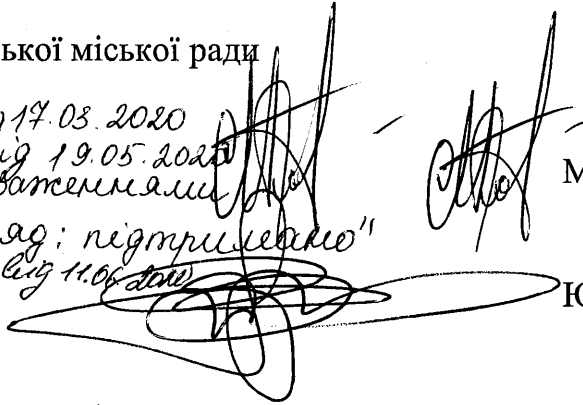 ької міської ради
17.03.2020
від 19.05.2020
зауваженнями
М
ряд: підтримано"
від 11.06.2020
Ю